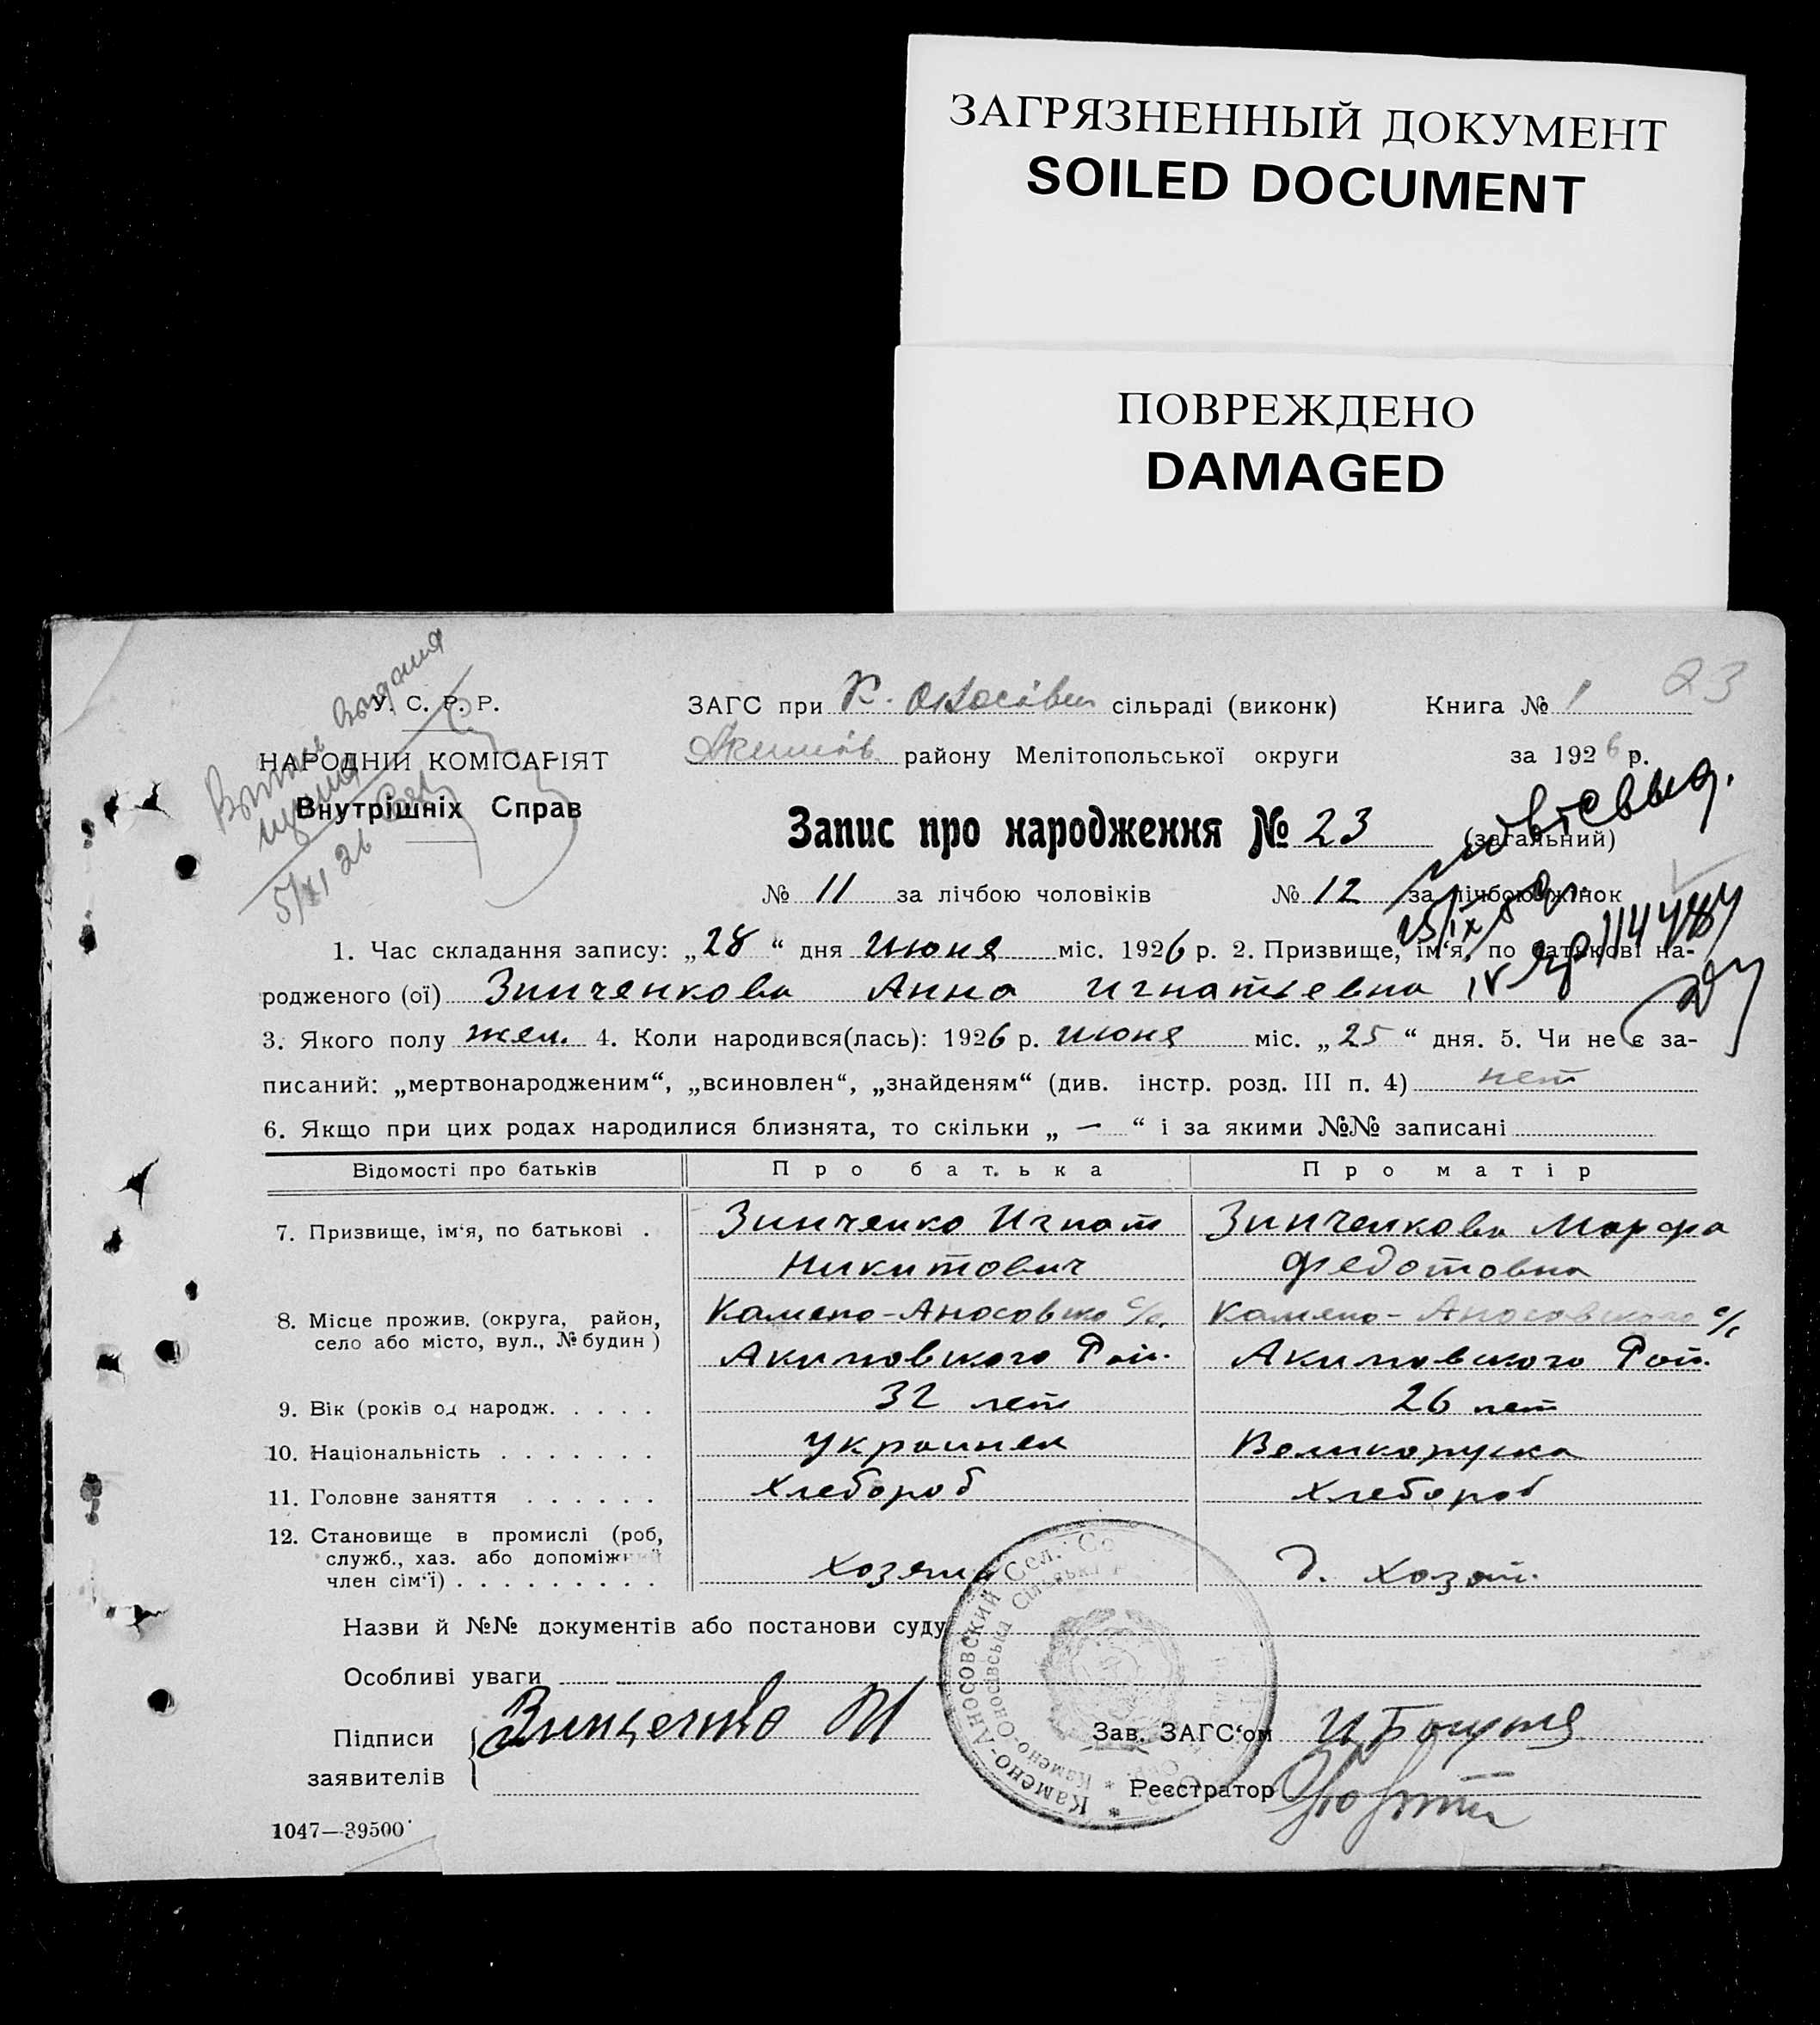 ЗАГРЯЗНЕННЫЙ ДОКУМЕНТ
SOILED DOCUMENT
ПОВРЕЖДЕНО
DAMAGED
23
У. С. Р. Р.
НАРОДНІЙ КОМІСАРІЯТ
Внутрішніх Справ
5/XI 26
ЗАГС при К. Оносівск сільраді (виконк) Книга № 1
Акимів району Мелітопольської округи за 1926 р.
Запис про народження № 23 (загальний)
повт свыд.
№ 11 за лічбою чоловіків № 12 за лічбою жінок
1. Час складання запису: „28“ дня июня міс. 1926 р. 2. Призвище, ім‘я, по батькові на-
родженого (ої) Зинченкова Анна Игнатьевна
3. Якого полу жен. 4. Коли народився(лась): 1926 р. июня міс. „25“ дня. 5. Чи не є за-
писаний: „мертвонародженим“, „всиновлен“, „знайденям“ (див. інстр. розд. III п. 4) нет
6. Якщо при цих родах народилися близнята, то скільки „ — “ і за якими №№ записані
Відомості про батьків Про батька Про матір
7. Призвище, ім‘я, по батькові . Зинченко Игнат Зинченкова Марфа
Никитович Федотовна
8. Місце прожив. (округа, район, Камено-Аносовско с/с. Камено-Аносовского с/с
село або місто, вул., № будин) Акимовского Рай. Акимовского Рай.
9. Вік (років од народж. . . . . 32 лет 26 лет
10. Національність . . . . . . . украинец Великоруска
11. Головне заняття . . . . . . Хлебороб Хлебороб
12. Становище в промислі (роб,
служб., хаз. або допоміжний
член сім‘ї) . . . . . . . . . Хозяин д. хозяй.
Назви й №№ документів або постанови суду
Особливі уваги
Підписи
заявителів
Зинченко И
Зав. ЗАГС‘ом
Реєстратор
Камено-Аносовский Сел. Со
Камено-Оносівська Сільська Р
1047—39500